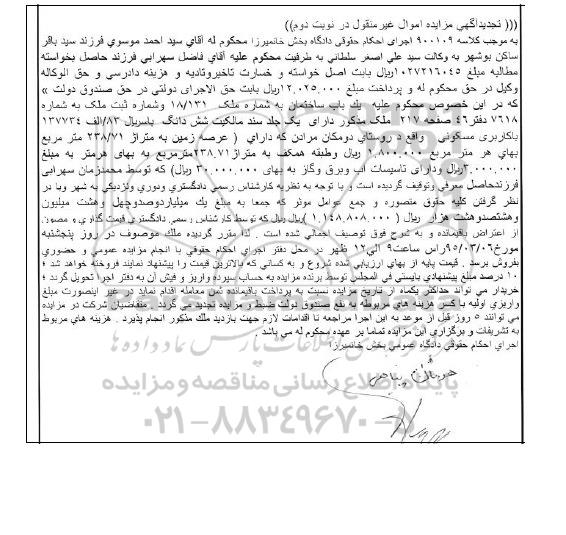 ((( تجدیدآگهي مزایده اموال غیرمنقول در نوبت دوم))
به موجب کلاسه ۹۰۰۱۰۹ اجرای احکام حقوقی دادگاه بخش خانمیرزا محکوم له آقاي سید احمد موسوي فرزند سید باقر
ساکن بوشهر به وکالت سید علي اصغر سلطاني به طرفیت محکوم علیه آقاي فاضل سهرابي فرزند حاصل بخواسته
مطالبه مبلغ ۱۰۲۷۲۱۶۰۴۵ریال بابت اصل خواسته و خسارت تاخیروتادیه و هزینه دادرسي و حق الوکاله
وکیل در حق محکوم له و پرداخت مبلغ ۱۲.۰۲۵.۰۰۰ریال بابت حق الاجراي دولتي در حق صندوق دولت »
که در این خصوص محکوم علیه یك باب ساختمان به شماره ملك ۱۸/۱۳۱ وشماره ثبت ملك به شماره
۷۶۱۸ دفتر۴۶ صفحه ۲۱۷ ملك مذکور دارای یك جلد سند مالکیت شش دانگ باسریال ۸۳/الف ۱۳۷۷۳۴
باکاربری مسکونی واقع د روستاي دومکان مرادن که داراي ( عرصه زمین به متراژ ۲۳۸/۷۱ متر مربع
بهاي هر متر مربع ۱.۸۰۰.۰۰۰ ریال وطبقه همکف به متراژ۲۳۸.۷۱مترمربع به بهای هرمتر به مبلغ
۳.۰۰۰.۰۰۰ریال ودارای تاسیسات آب وبرق وگاز به بهای ۳۰.۰۰۰.۰۰۰ ریال) که توسط محمدزمان سهرابي
فرزندحاصل معرفي وتوقیف گردیده است و با توجه به نظریه کارشناس رسمي دادگستري ودوري ونزدیکي به شهر وبا در
نظر گرفتن کلیه حقوق متصوره و جمع عوامل موثر که جمعا به مبلغ یك میلیاردوصدوچهل وهشت میلیون
وهشتصدوهشت هزار ریال ( ۱.۱۴۸.۸۰۸.۰۰۰ )ریال که توسط کارشناس رسمي دادگستري قیمت گذاري و مصون
از اعتراض باقیمانده و به شرح فوق توصیف اجمالي شده است . لذا مقرر گردیده ملك موصوف در روز پنجشنبه
مورخ۹۵/۰۳/۰۶راس ساعت۹ الي۱۲ ظهر در محل دفتر اجراي احکام حقوقي با انجام مزایده عمومي و حضوري
بفروش برسد . قیمت پایه از بهاي ارزیابي شده شروع و به کساني که بالاترین قیمت را پیشنهاد نمایند فروخته خواهد شد ؛
۱۰ درصد مبلغ پیشنهادي بایستي في المجلس توسط برنده مزایده به حساب سپرده واریز و فیش آن به دفتر اجرا تحویل گردد ؛
خریدار مي تواند حداکثر یکماه از تاریخ مزایده نسبت به پرداخت باقیمانده ثمن معامله اقدام نماید در غیر اینصورت مبلغ
واریزي اولیه با کسر هزینه هاي مربوطه به نفع صندوق دولت ضبط و مزایده تجدید مي گردد . متقاضیان شرکت در مزایده
مي توانند ۵ روز قبل از موعد به این اجرا مراجعه تا اقدامات لازم جهت بازدید ملك مذکور انجام پذیرد . هزینه هاي مربوط
به تشریفات و برگزاري این مزایده تماما بر عهده محکوم له مي باشد .
اجراي احکام حقوقي دادگاه عمومي بخش خانمیرزا
پایگاه اطلاع رسانی مناقصه و مزایده
۰۲۱-۸۸۳۴۹۶۷۰-۲